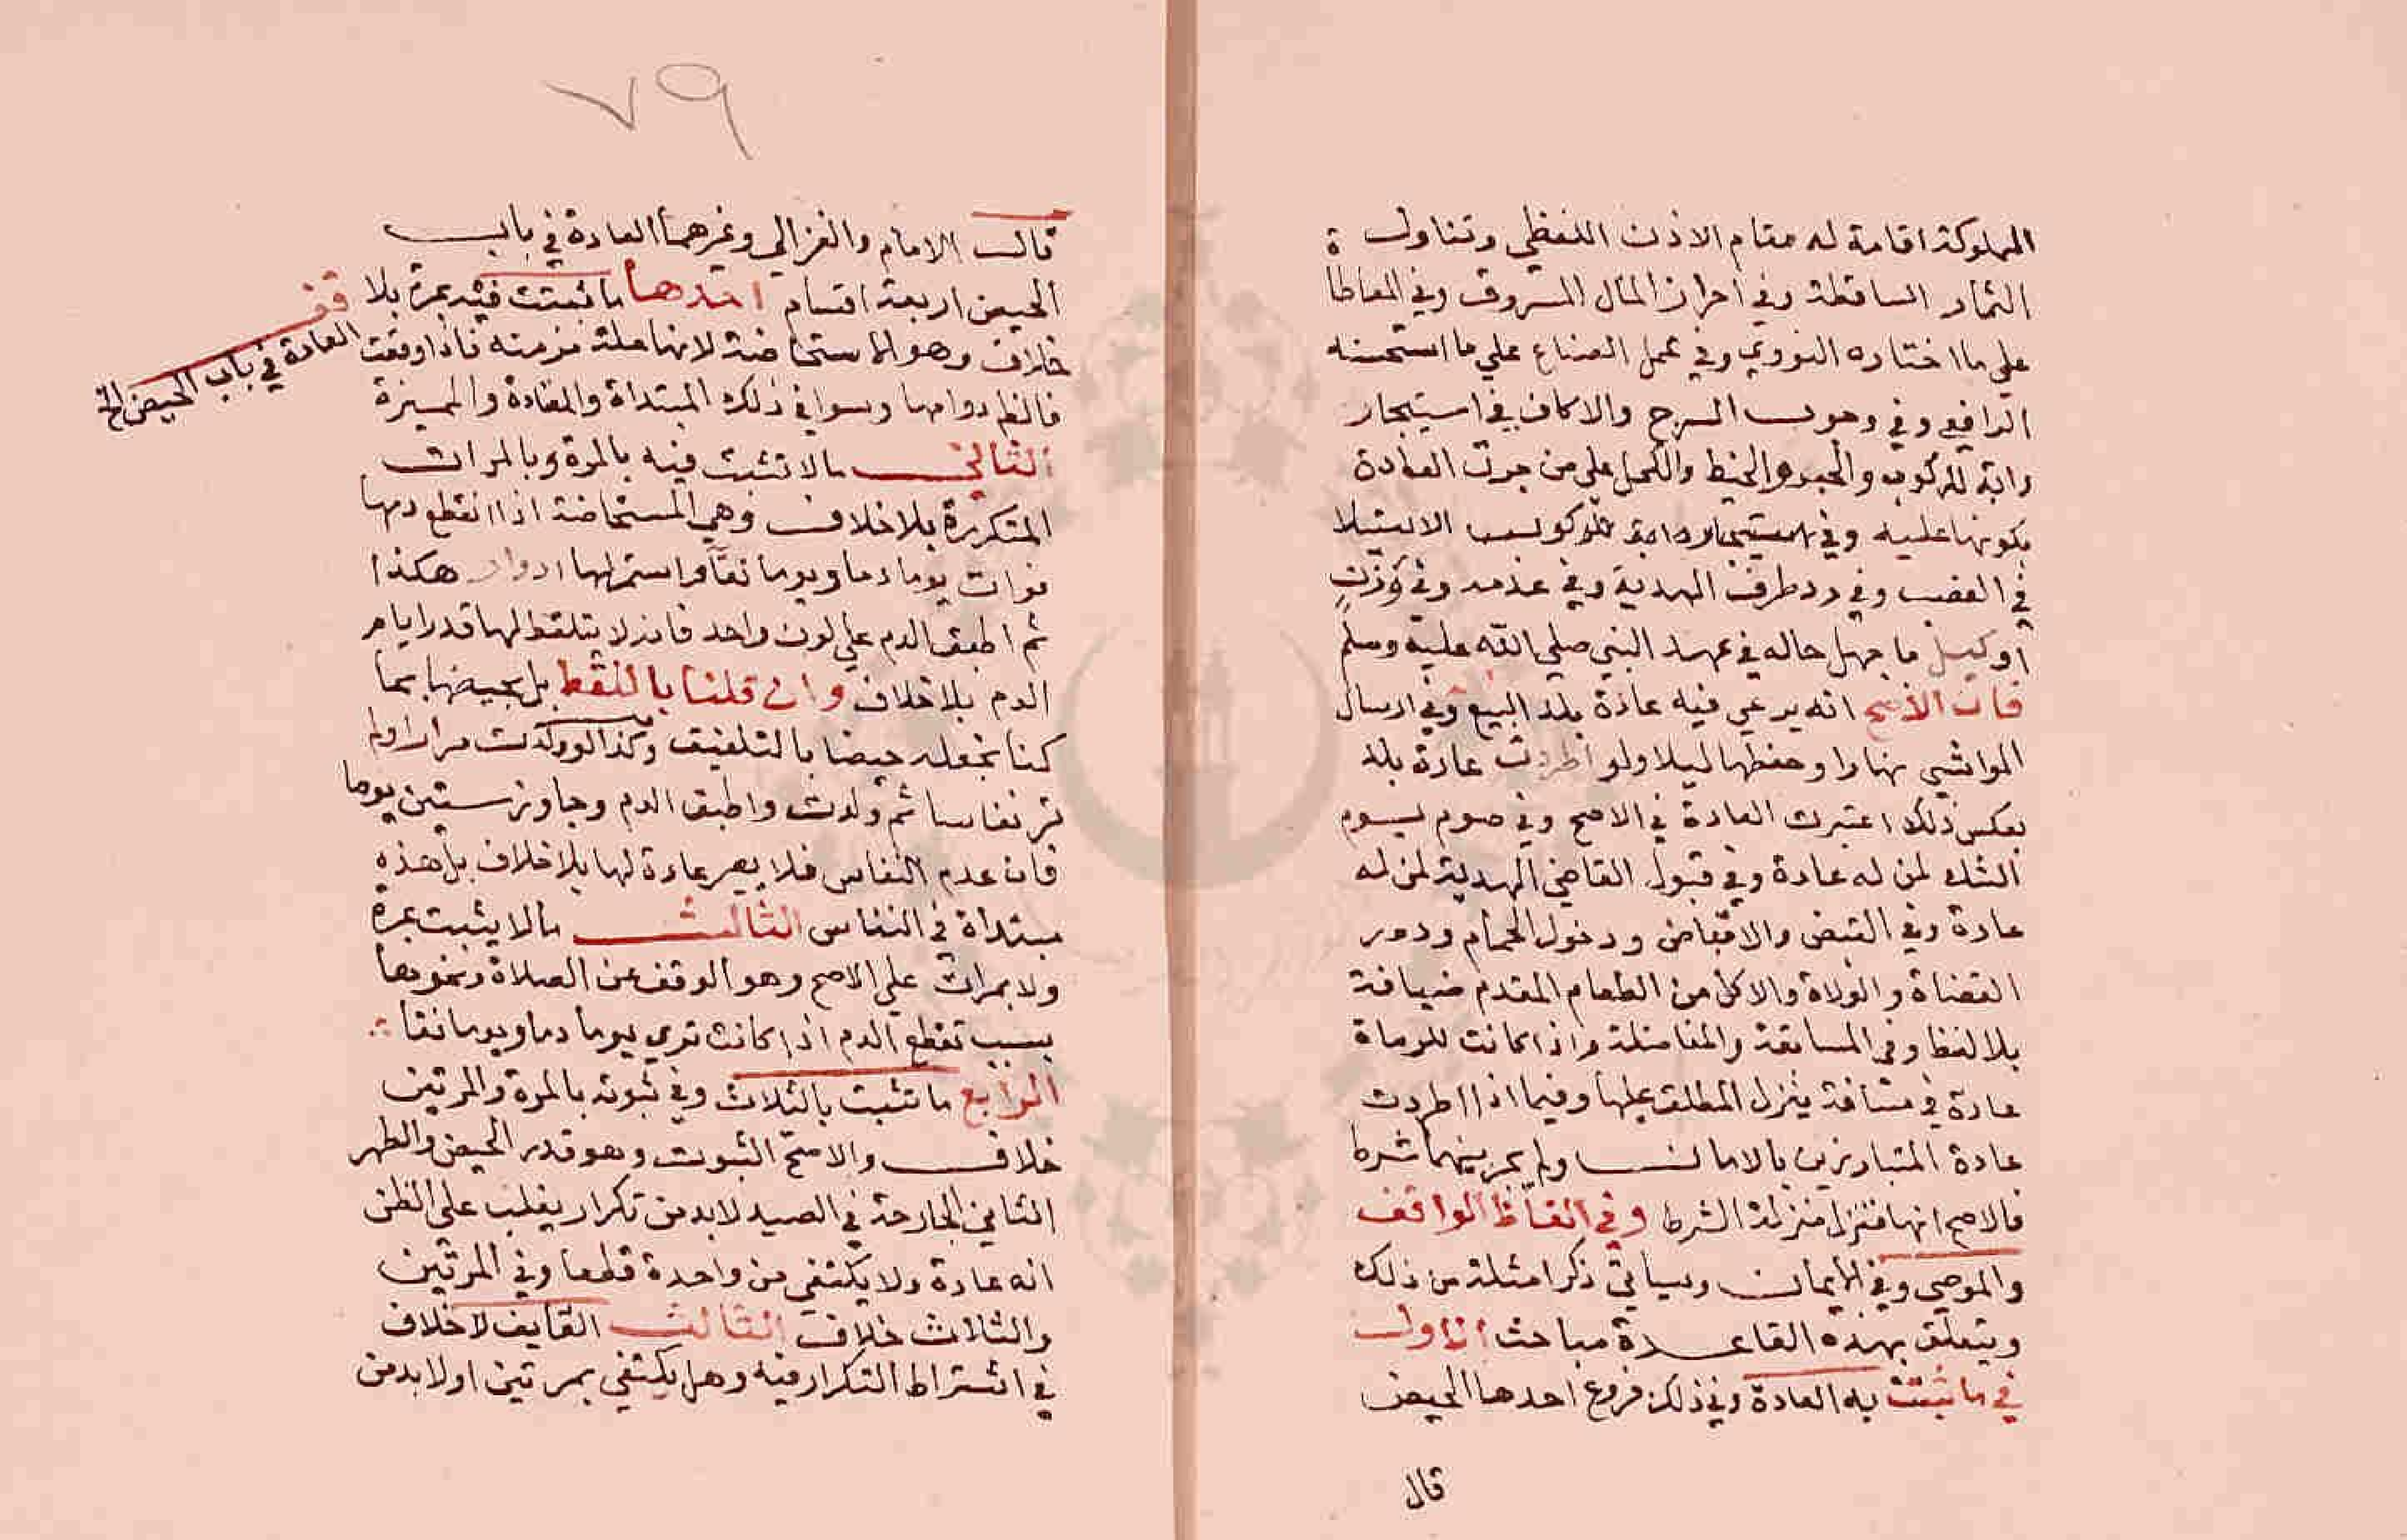 المملوكة اقامة له مقام الاذن اللفظي وتناول
الثمار الساقطة وفي احراز المال المسروق وفي المعاطاة
علي ما اختاره النووي وفي عمل الصناع علي ما استحسنه
الرافعي وفي وجوب السرج والاكاف في استيجار
دابة للركوب والحبر والخيط والكحل علي من جرت العادة
بكونها عليه وفي استيجار دابة للركوب الاستيلا
في الغصب وفي رد ظرف الهدية وفي عدمه وفي وزن
او كيل ما جهل حاله في عهد النبي صلي الله عليه وسلم
فان الأصح انه يرعي فيه عادة بلد البيع وفي ارسال
المواشي نهارا وحفظها ليلا ولو اطردت عادة بلد
بعكس ذلك اعتبرت العادة في الاصح وفي صوم يوم
الشك لمن له عادة وفي قبول القاضي الهدية لمن له
عادة وفي القبض والاقباض ودخول الحمام ودور
القضاة والولاة والاكل من الطعام المقدم ضيافة
بلا لفظ وفي المسابقة والمناضلة واذا كانت للرماة
عادة في مسافة ينزل المطلق عليها وفيما اذا اطردت
عادة المتبارزين بالامان ولم يجر بينهما شرط
فالاصح انها تنزل منزلة الشرط وفي الفاظ الواقف
والموصي وفي الأيمان وسياتي ذكر امثلة من ذلك
ويتعلق بهذه القاعدة مباحث الاول
في ما تثبت به العادة وفي ذلك فروع احدها الحيض
قال
٧٩
قالـ الامام والغزالي وغيرهما العادة في باب
الحيض اربعة اقسام احدها ما ثبتت فيه بمرة بلا
خلاف وهو الاستحاضة لانها علة مزمنة فاذا وقعت
فالظا دوامها وسوا في ذلك المبتداة والمعتادة والمميزة
الثاني مالا تثبت فيه بالمرة وبالمرات
المتكررة بلا خلاف وهي المستحاضة اذا انقطع دمها
فرات يوما دما ويوما نقاً واستمر لها ادوار هكذا
ثم اطبق الدم علي لون واحد فانه لا يلتقط لها قدر ايام
الدم بلا خلاف وان قلنا باللقط بل يحيضها بما
كنا نجعله حيضا بالتلفيق وكذا لو ولدت مرارا ولم
تر نفاسا ثم ولدت واطبق الدم وجاوز ستين يوما
فان عدم النفاس فلا يصر عادة لها بلا خلاف بل هذه
مبتداة في النفاس الثالث مالا يثبت بمرة
ولا بمرات علي الاصح وهو الوقف عن الصلاة ونحوها
بسبب تقطع الدم اذا كانت تري يوما دما ويوما نقا
الرابع ما تثبت بالثلاث وفي ثبوته بالمرة والمرتين
خلاف والاصح الثبوت وهو قدر الحيض والطهر
الثاني الجارحة في الصيد لابد من تكرار يغلب علي الظن
انه عادة ولا يكتفي من واحدة قطعا وفي المرتين
والثلاث خلاف الثالث القايف لا خلاف
في اشتراط التكرار فيه وهل يكتفي بمرتين اولا بد من
قف
العادة في باب الحيض الخ